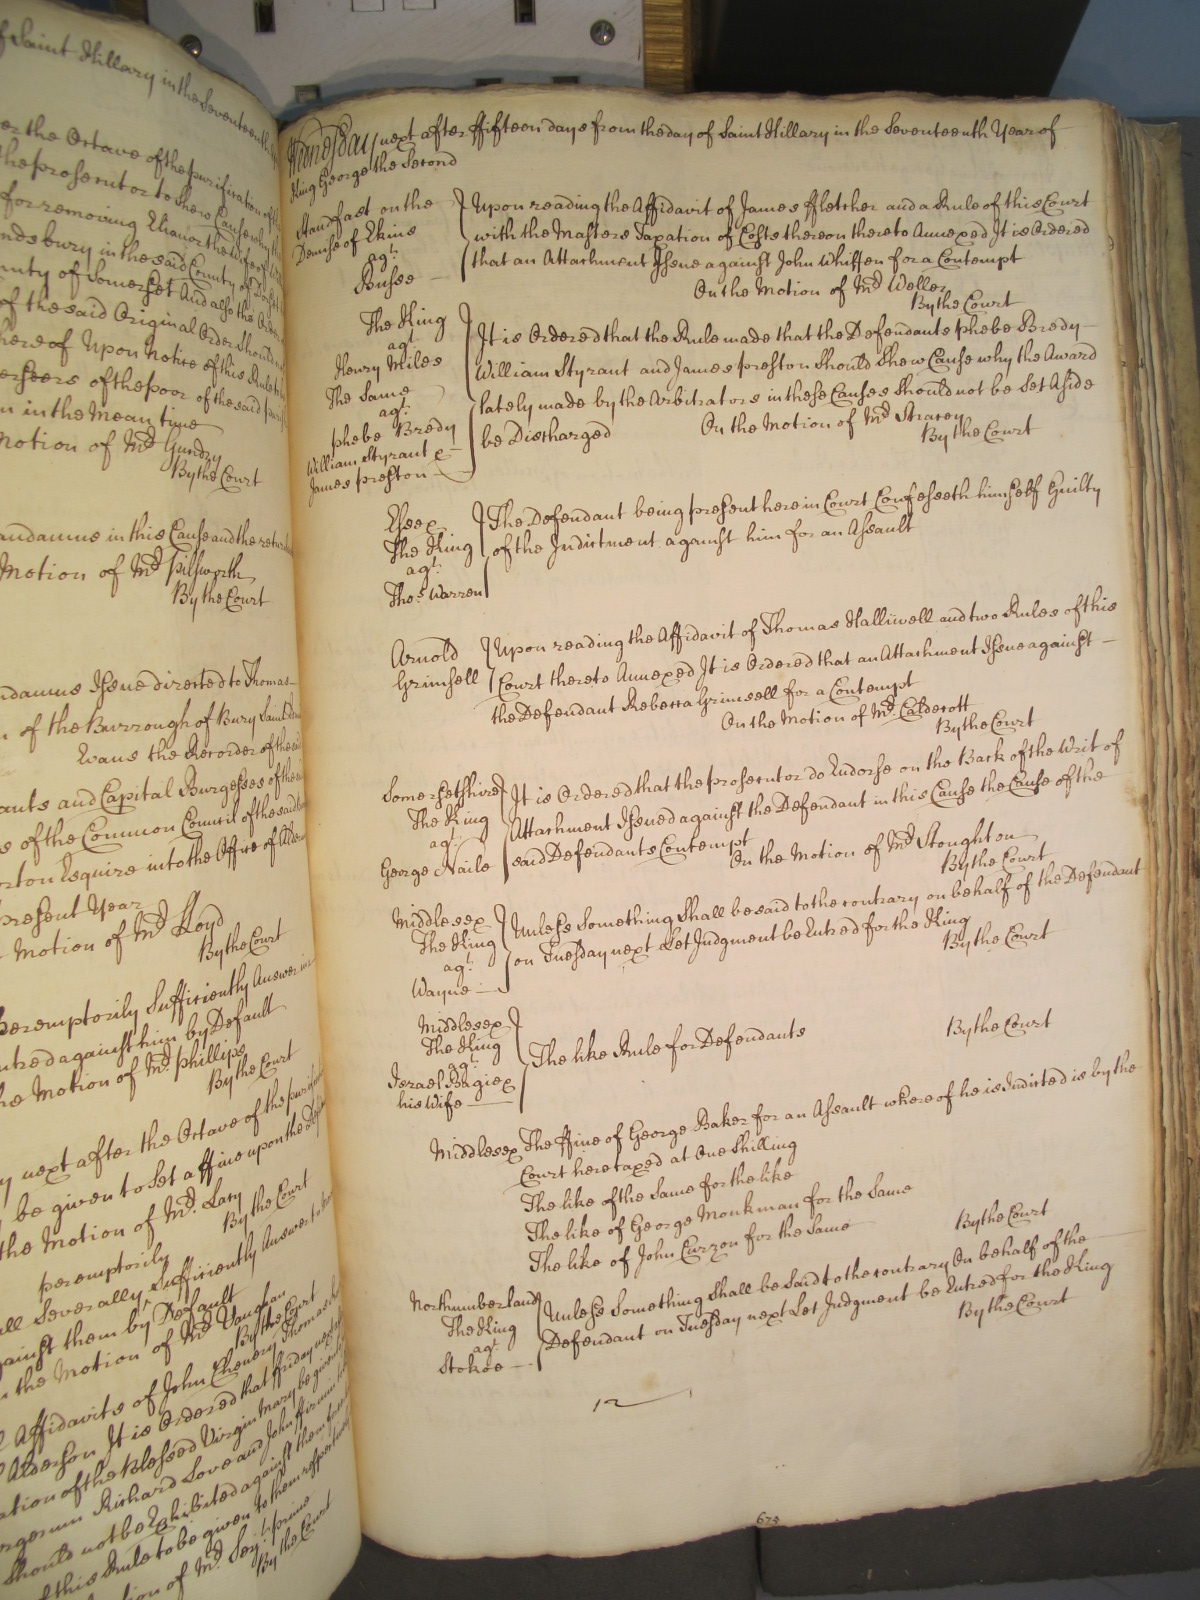 of Saint Hillary in the Seventeenth
er the Octave of the purification of the
the prosecutor to shew Cause why the
for removing Elianor the Wife of
ndsbury in the said County of Dorset
unty of Somerset And also the Order
of the said Original Order should
hereof Upon Notice of this Rule to be
erseers of the poor of the said parish
n in the Mean time
Motion of Mr. Gundry
By the Court
andamus in this Cause and the return
Motion of Mr. Pilsworth
By the Court
ndamus Issue directed to Thomas
n of the Burrough of Bury Saint
Evans the Recorder of the
ants and Capital Burgesses of the
s of the Common Council of the said
rton Esquire into the Office of
present Year
Motion of Mr. Lloyd
By the Court
peremptorily Sufficiently Answer
ntred against him by Default
he Motion of Mr. phillips
By the Court
y next after the Octave of the purification
be given to Set a ffine upon the
the Motion of Mr. Lacy
By the Court
peremptorily
all Severally Sufficiently Answer to
gainst them by Default
n the Motion of Mr. Vaughan
By the Court
Affidavits of John Chenery Thomas
Alderson It is Ordered that ffriday next
ation of the Blessed Virgin Mary be given
Richard Love and John ffirmin
Should not be Exhibited against them
of this Rule to be given to them respectively
tion of Mr. Serjt. prime
By the Court
Wednesday next after ffifteen days from the day of Saint Hillary in the Seventeenth Year of
King George the Second
Standfast on the
Demise of Ekins
agt.
Busse
Upon reading the Affidavit of James ffletcher and a Rule of this Court
with the Masters Taxation of Costs thereon thereto Annexed It is Ordered
that an Attachment Issue against John Whiffen for a Contempt
On the Motion of Mr. Weller
By the Court
The King
agt.
Henry Miles
The Same
agt.
phebe Bredy
William Styrant &
James preston
It is Ordered that the Rule made that the Defendants phebe Bredy
William Styrant and James preston Should Shew Cause why the Award
lately made by the Arbitrators in these Causes Should not be Set Aside
be Discharged On the Motion of Mr. Stracey
By the Court
Essex
The King
agt.
Thos. Warren
The Defendant being present here in Court Confesseth himself Guilty
of the Indictment against him for an Assault
Arnold
Grimsell
Upon reading the Affidavit of Thomas Halliwell and two Rules of this
Court thereto Annexed It is Ordered that an Attachment Issue against
the Defendant Rebecca Grimsell for a Contempt
On the Motion of Mr. Caldecott
By the Court
Somersetshire
The King
agt.
George Naile
It is Ordered that the prosecutor do Endorse on the Back of the Writ of
Attachment Issued against the Defendant in this Cause the Cause of the
said Defendants Contempt
On the Motion of Mr. Stoughton
By the Court
Middlesex
The King
agt.
Wayne
Unless Something Shall be said to the contrary on behalf of the Defendant
on Tuesday next Let Judgment be Entred for the King
By the Court
Middlesex
The King
agt.
Israel Bagie &
his Wife
The like Rule for Defendants
By the Court
Middlesex The ffine of George Baker for an Assault whereof he is Indicted is by the
Court here taxed at One Shilling
The like of the Same for the like
The like of George Monkman for the Same
The like of John Curzon for the Same
By the Court
Northumberland
The King
agt.
Stokoe
Unless Something Shall be Said to the contrary On behalf of the
Defendant on Tuesday next Let Judgment be Entred for the King
By the Court
12